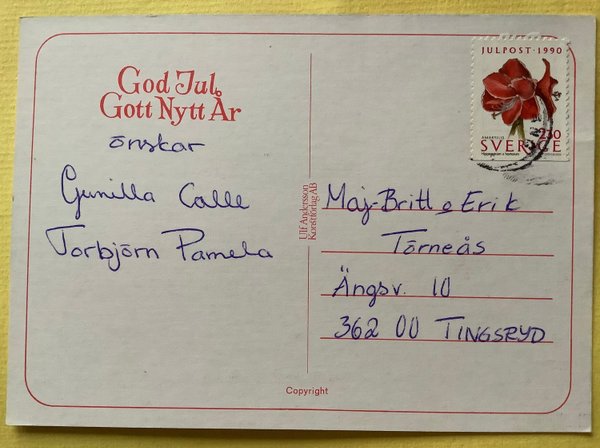 God Jul
Gott Nytt År
önskar
Gunilla Calle
Torbjörn Pamela
Ulf Andersson
Konstförlag AB
JULPOST · 1990
AMARYLLIS
2.30
SVERIGE
Maj-Britt o Erik
Törneås
Ängsv. 10
362 00 TINGSRYD
Copyright